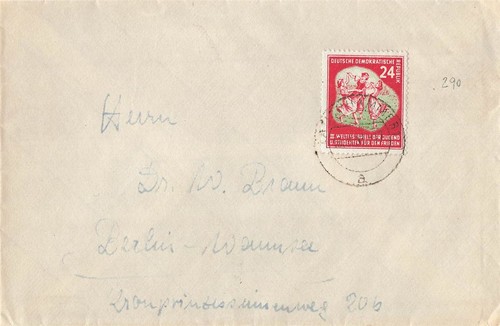 DEUTSCHE DEMOKRATISCHE
REPUBLIK
24
290
III WELTFESTSPIELE DER JUGEND
U. STUDENTEN FÜR DEN FRIEDEN
a
Herrn
Dr. W. Braun
Berlin-Wannsee
Kronprinzessinnenweg 20b